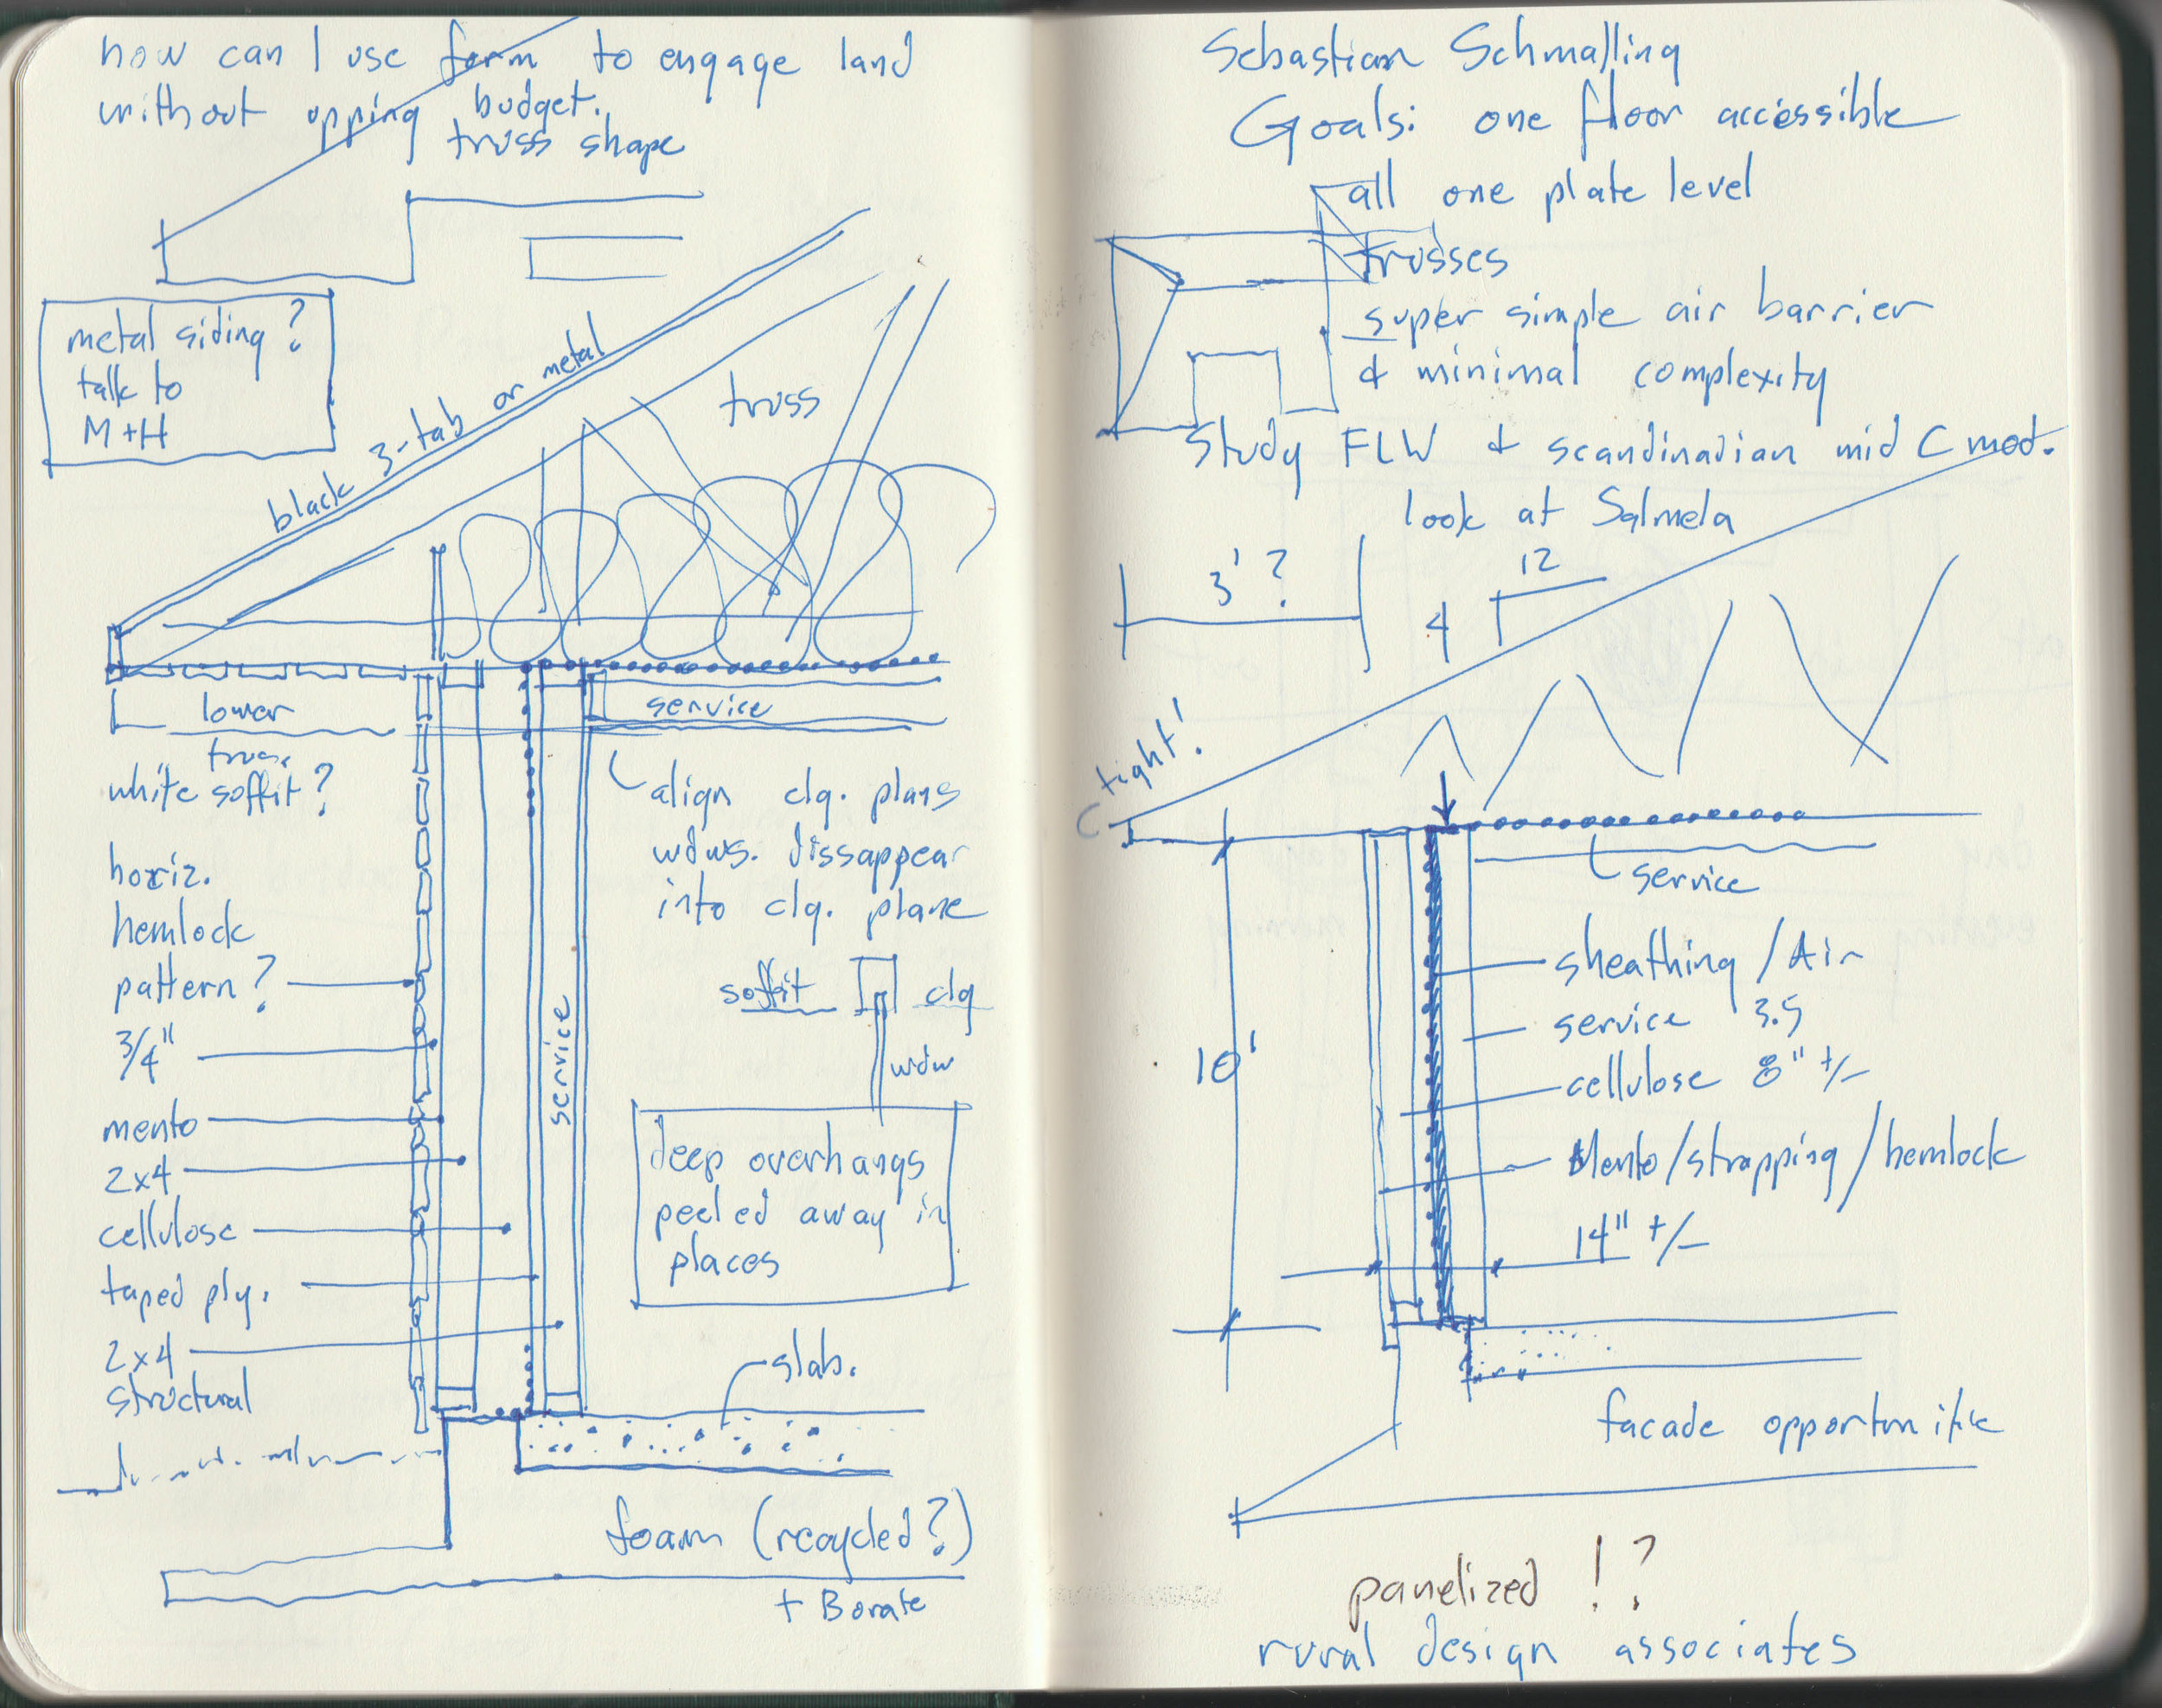 how can I use form to engage land
without upping budget.
truss shape
metal siding?
talk to
M+H
black 3-tab or metal
truss
lower
truss
service
white soffit?
align clg. plans
wdws. dissappear
into clg. plane
horiz.
hemlock
pattern?
soffit clg
wdw
3/4"
mento
2x4
service
cellulose
taped ply.
2x4
structural
deep overhangs
peeled away in
places
slab.
foam (recycled?)
+ Borate
Sebastian Schmalling
Goals: one floor accessible
all one plate level
trusses
super simple air barrier
& minimal complexity
Study FLW & scandinavian mid C mod.
look at Salmela
3'?
12
4
tight!
service
10'
sheathing/Air
service 3.5
cellulose 8" +/-
Mento/strapping/hemlock
14" +/-
facade
panelized !?
rural design associates